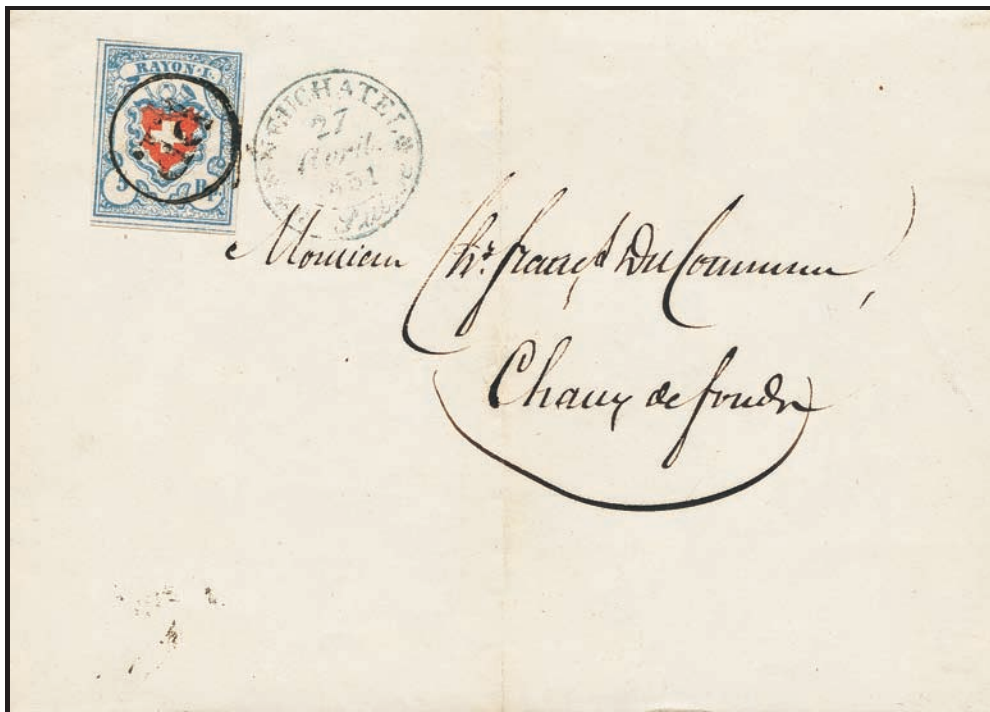 RAYON·I·
5 Rp.
NEUCHATEL
27
Avril
1851
Monsieur Chs. franç. DuCommun,
Chaux de fonds